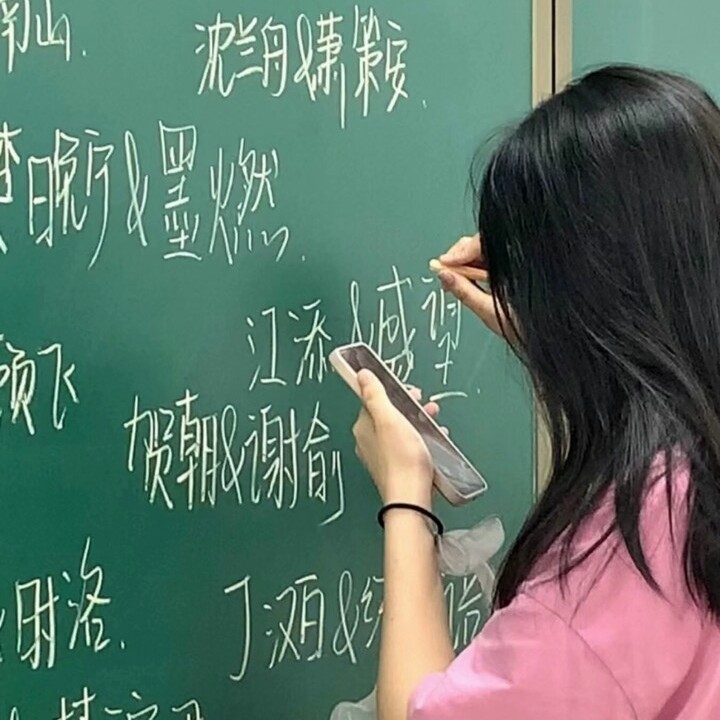 山.
沈兰舟&萧策安.
晚宁&墨燃.
江添&盛望.
顾飞
贺朝&谢俞
&时洛.
丁汉白&